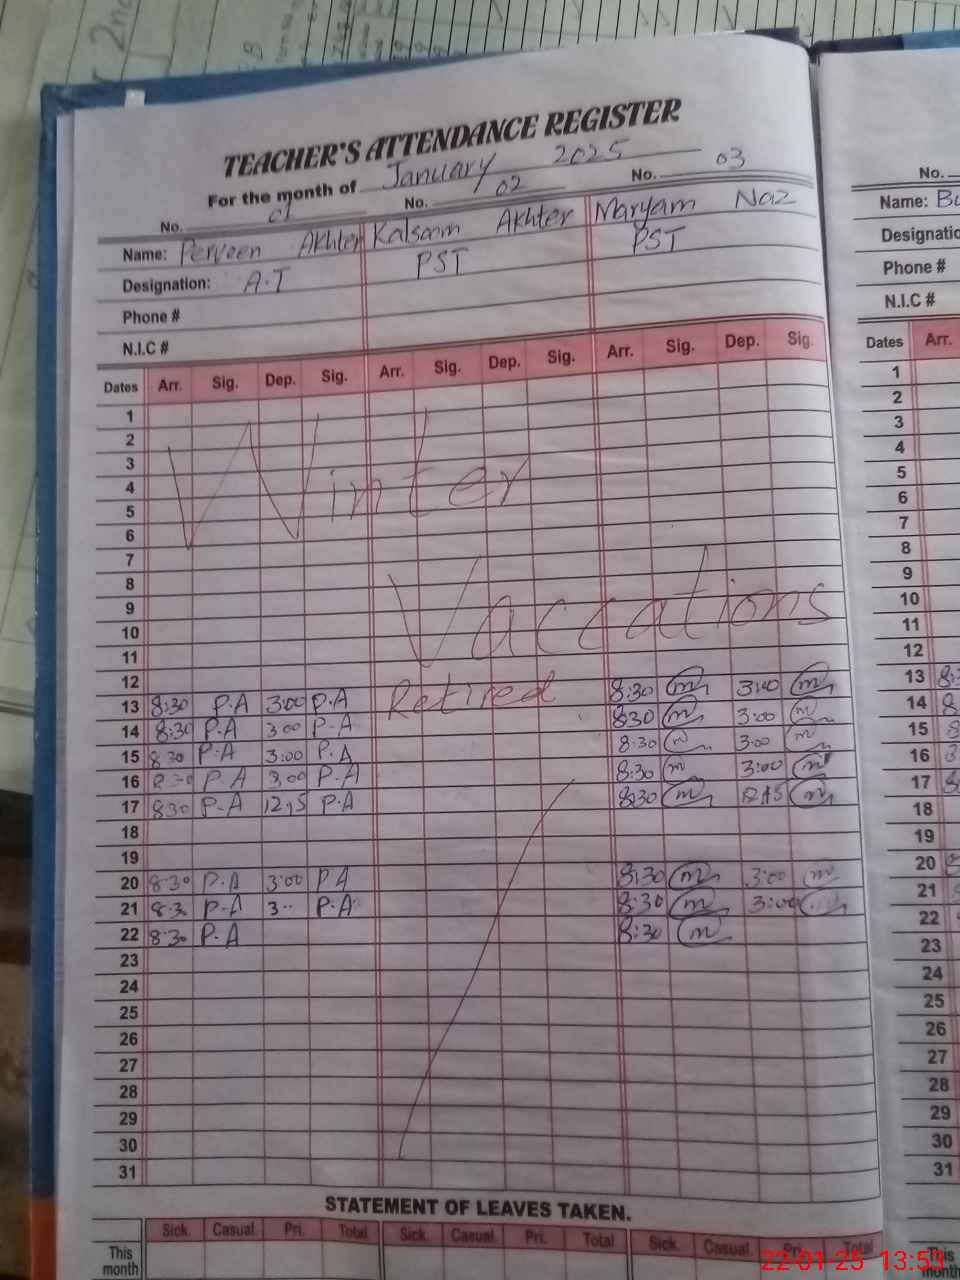 TEACHER'S ATTENDANCE REGISTER
For the month of January 2025
No. 01 No. 02 No. 03
Name: Perveen Akhter Kalsoom Akhter Maryam Naz
Designation: A.T PST PST
Phone #
N.I.C #
Dates Arr. Sig. Dep. Sig. Arr. Sig. Dep. Sig. Arr. Sig. Dep. Sig.
1
2
3
4
5
6
Winter
7
8
9
10
11
Vaccations
12
13 8:30 P.A 3:00 P.A Retired 8:30 m 3:00 m
14 8:30 P.A 3:00 P.A 8:30 m 3:00 m
15 8:30 P.A 3:00 P.A 8:30 m 3:00 m
16 8:30 P.A 3:00 P.A 8:30 m 3:00 m
17 8:30 P.A 12:15 P.A 8:30 m 12:15 m
18
19
20 8:30 P.A 3:00 P.A 8:30 m 3:00 m
21 8:30 P.A 3.. P.A 8:30 m 3:00
22 8:30 P.A 8:30 m
23
24
25
26
27
28
29
30
31
STATEMENT OF LEAVES TAKEN.
Sick. Casual. Pri. Total Sick. Casual. Pri. Total Sick. Casual. Pri. Total
This month
No.
Name:
Phone #
N.I.C #
Dates Arr.
1
2
3
4
5
6
7
8
9
10
11
12
13
14
15
16
17
18
19
20
21
22
23
24
25
26
27
28
29
30
31
This month
22-01-25 13:53